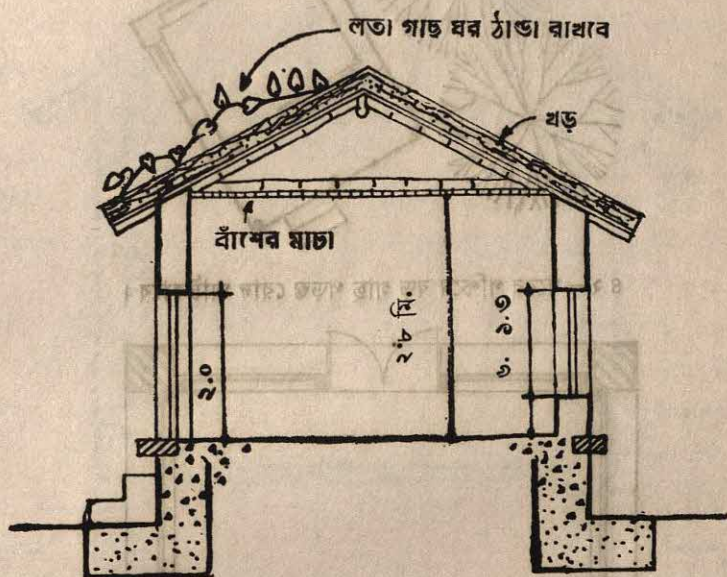 লতা গাছ ঘর ঠাণ্ডা রাখবে
খড়
বাঁশের মাচা
২.০
২.৮ মি.
১.৩